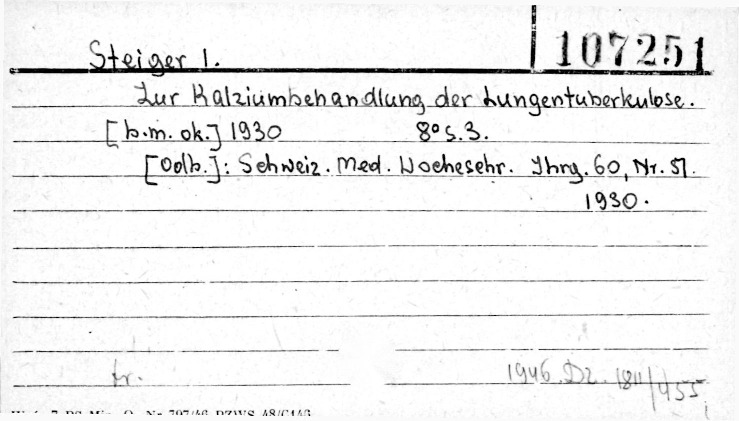 Steiger I. 107251
Zur Kalziumbehandlung der Lungentuberkulose.
[b.m. ok.] 1930 8° s. 3.
[Odb.]: Schweiz. Med. Wochesehr. Jhrg. 60, Nr. 51.
1930.
tr. 1946. Dz. 1811/455